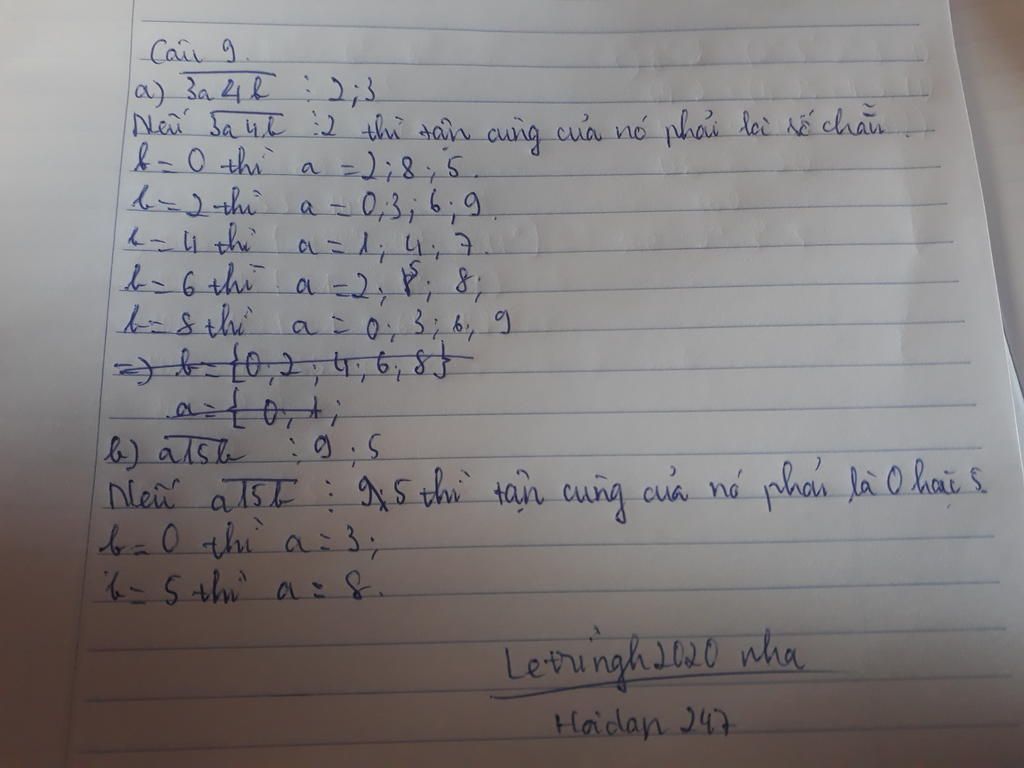 Câu 9.
a) 3a4b ⋮ 2;3
Nếu 3a4b ⋮2 thì tận cùng của nó phải là số chẵn.
b=0 thì a=2;8;5.
b=2 thì a=0;3;6;9.
b=4 thì a=1;4;7.
b=6 thì a=2;5;8;
b=8 thì a=0;3;6;9
=> b={0;2;4;6;8}
a={0;1;
b) a15b ⋮ 9;5
Nếu a15b ⋮ 5 thì tận cùng của nó phải là 0 hoặc 5.
b=0 thì a=3;
b=5 thì a=8.
Letrungh2020 nha
Hoidap 247